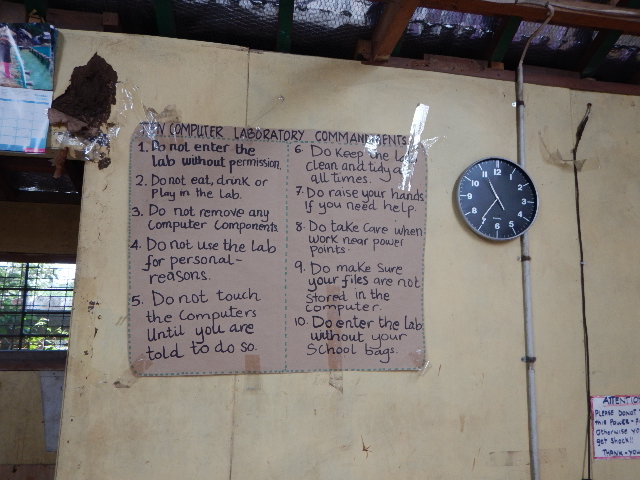 COMPUTER LABORATORY COMMANDMENTS
1. Do not enter the
lab without permission.
2. Do not eat, drink or
Play in the lab.
3. Do not remove any
Computer Components
4. Do not use the lab
for personal-
reasons.
5. Do not touch
the computers
Until you are
told to do so.
6. Do Keep the
clean and tidy
all times.
7. Do raise your hands
If you need help.
8. Do take care when
work near power
points.
9. Do make sure
your files are not
stored in the
computer.
10. Do enter the lab
without your
School bags.
12
1
2
3
4
5
6
7
8
9
10
11
ATTENTION
PLEASE DO NOT
this POWER-
Otherwise
get shock!!
THANK-YOU